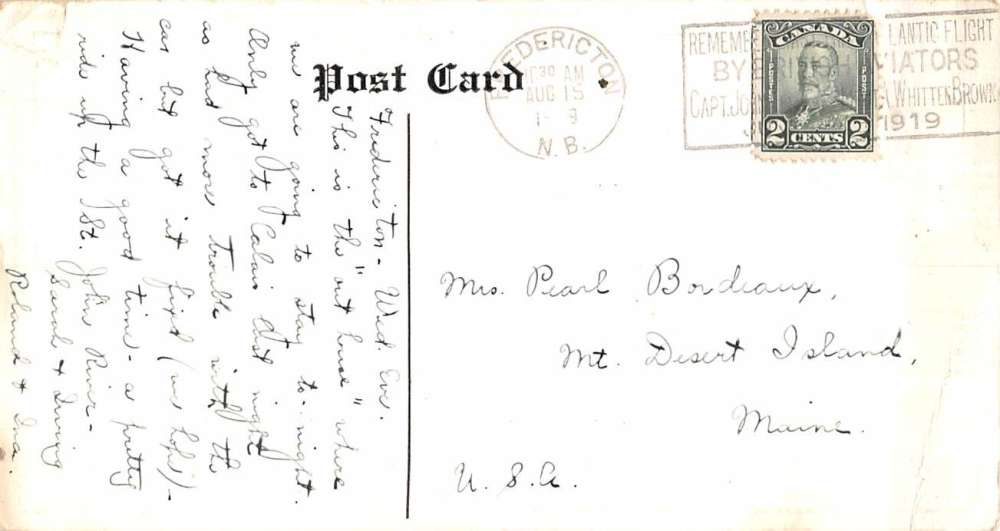 Post Card
FREDERICTON
30 AM
AUG 15
N.B.
REMEMBER LANTIC FLIGHT
BY VIATORS
CAPT. JO WHITTEN BROWN
1919
CANADA
POSTES POST
2 CENTS 2
Fredericton - Wed. Eve.
This is the "out house" where
we are going to stay to-night.
Only got to Calais last night
as had more trouble with the
car but got it fixed (we hope) -
Having a good time - a pretty
ride up the St. John River -
Sarah & Irving
Roland & Ina.
Mrs. Pearl Bordeaux,
Mt. Desert Island,
Maine.
U.S.A.